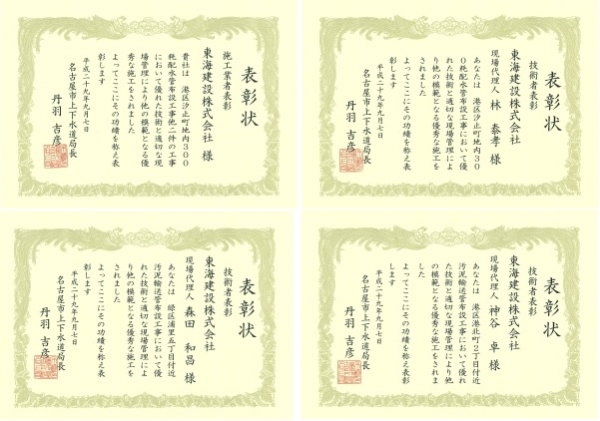 表彰状
施工業者表彰
東海建設株式会社 様
貴社は 港区汐止町地内300
粍配水管布設工事他二件の工事
において優れた技術と適切な現
場管理により他の模範となる優
秀な施工をされました
よってここにその功績を称え表
彰します
平成二十九年九月七日
名古屋市上下水道局長
丹羽 吉彦
表彰状
技術者表彰
東海建設株式会社
現場代理人 林 泰孝 様
あなたは 港区汐止町地内30
0粍配水管布設工事において優
れた技術と適切な現場管理によ
り他の模範となる優秀な施工を
されました
よってここにその功績を称え表
彰します
平成二十九年九月七日
名古屋市上下水道局長
丹羽 吉彦
表彰状
技術者表彰
東海建設株式会社
現場代理人 森田 和昌 様
あなたは 緑区浦里五丁目付近
汚泥輸送管布設工事において優
れた技術と適切な現場管理によ
り他の模範となる優秀な施工を
されました
よってここにその功績を称え表
彰します
平成二十九年九月七日
名古屋市上下水道局長
丹羽 吉彦
表彰状
技術者表彰
東海建設株式会社
現場代理人 神谷 卓 様
あなたは 港区港北町2丁目付近
汚泥輸送管布設工事において優れ
た技術と適切な現場管理により他
の模範となる優秀な施工をされま
した
よってここにその功績を称え表彰
します
平成二十九年九月七日
名古屋市上下水道局長
丹羽 吉彦